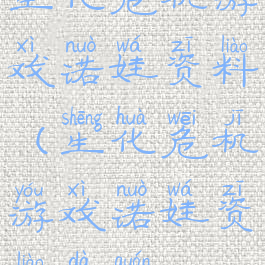 生化危机游
xì nuò wá zī liào
戏诺娃资料
shēng huà wēi jī
（生化危机
yóu xì nuò wá zī
游戏诺娃资
liào dà quán